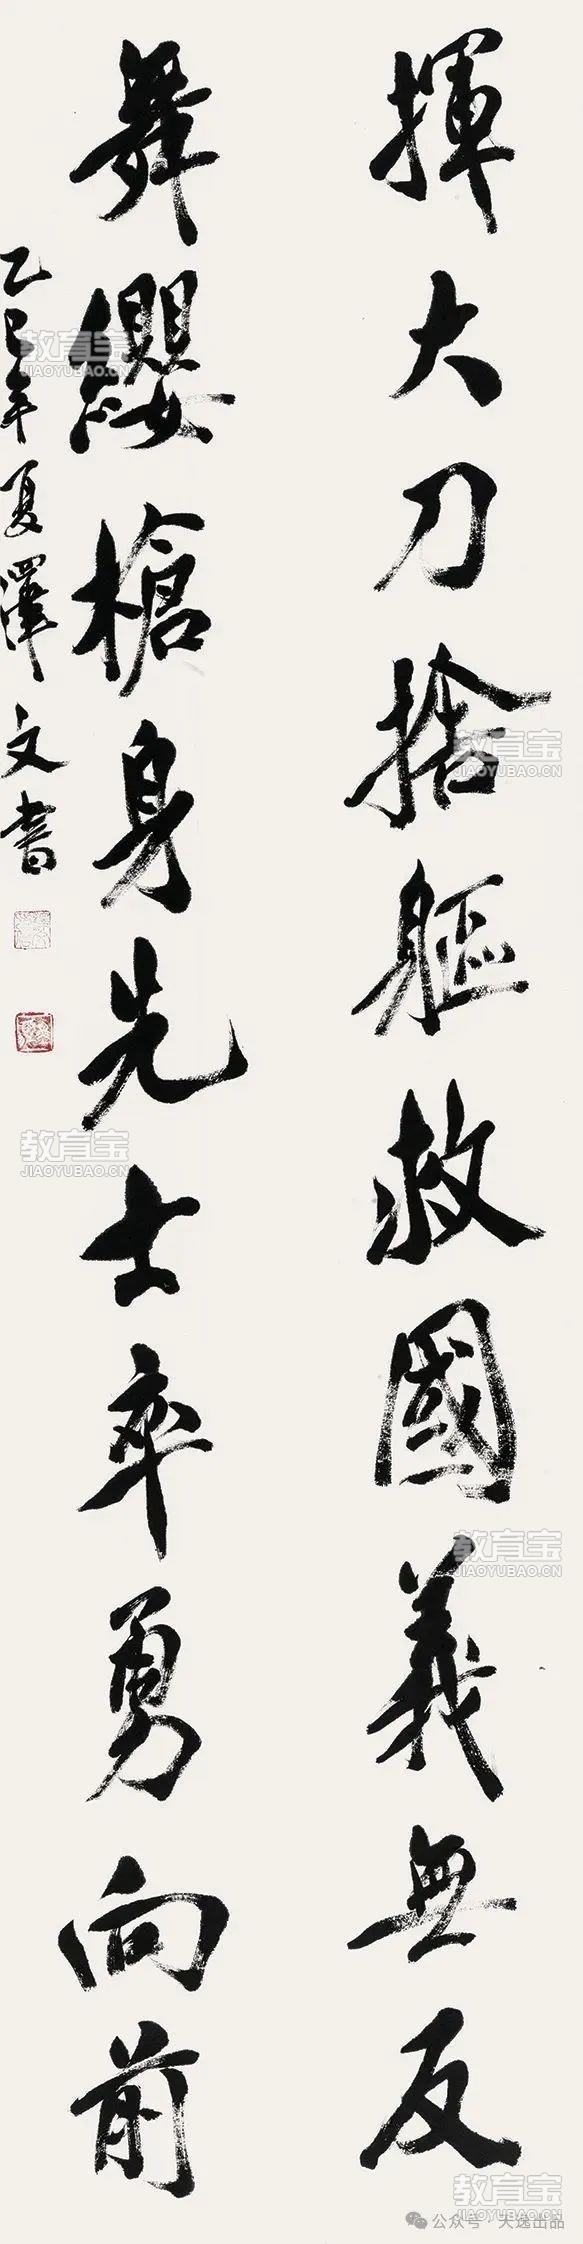 揮大刀捨軀救國義無反
舞纓槍身先士卒勇向前
乙巳年夏澤文書
教育宝
JIAOYUBAO.CN
教育宝
JIAOYUBAO.CN
教育宝
JIAOYUBAO.CN
教育宝
JIAOYUBAO.CN
教育宝
JIAOYUBAO.CN
公众号·天逸出品